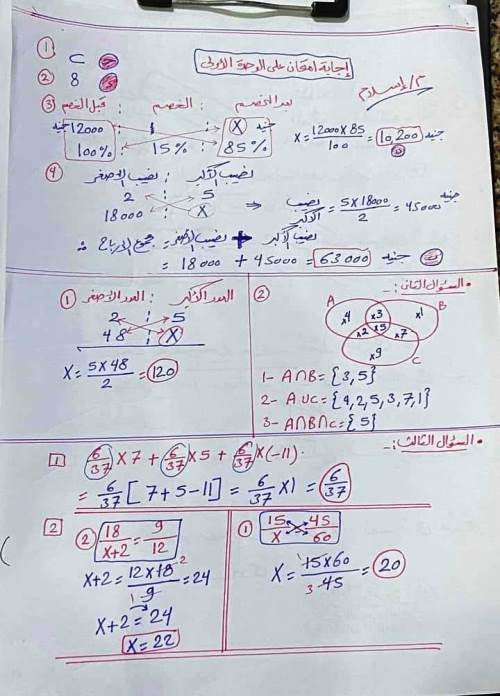 إجابة امتحان على الوحدة الأولى
م/إسلام
① C
② 8
③ قبل الخصم : الخصم : بعد الخصم
جنيه 12000 : : X جنيه
100% : 15% : 85%
X = 12000 x 85 / 100 = 10,200 جنيه
④ نصيب الأصغر : نصيب الأكبر
2 : 5
18000 : X
⇒ نصيب الأكبر = 5 x 18000 / 2 = 45000 جنيه
∴ مجموع الأرباح = نصيب الأصغر + نصيب الأكبر
= 18000 + 45000 = 63000 جنيه
• السؤال الثاني :-
① العدد الأصغر : العدد الأكبر
2 : 5
48 : X
X = 5 x 48 / 2 = 120
②
A B
x4 x3 x1
x2 x5 x7
x9
C
1- A∩B = {3, 5}
2- A∪C = {4, 2, 5, 3, 7, 1}
3- A∩B∩C = {5}
• السؤال الثالث :-
1 6/37 x 7 + 6/37 x 5 + 6/37 x (-11).
= 6/37 [7+5-11] = 6/37 x 1 = 6/37
2 ① 15/X 45/60
X = 15 x 60 / 45 = 20
3
② 18/X+2 = 9/12
X+2 = 12 x 18 / 9 = 24
2
1
X+2 = 24
X = 22